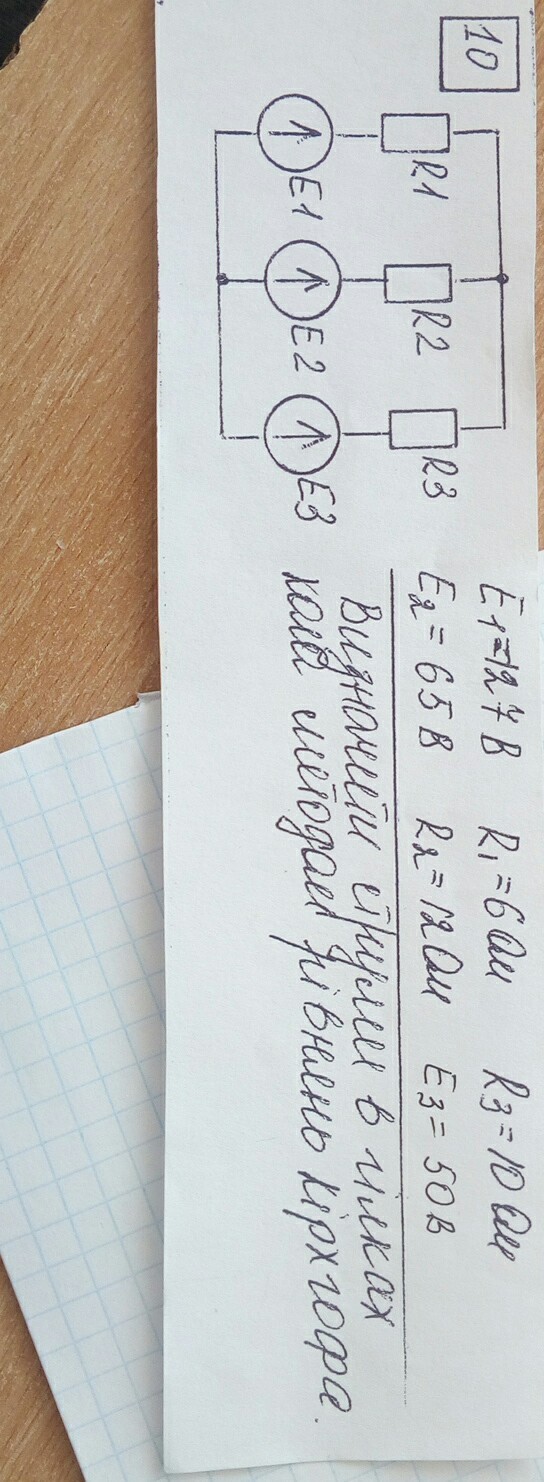 10
R1 R2 R3
E1 E2 E3
E1=127 В R1=6 Ом R3=10 Ом
E2=65 В R2=12 Ом E3=50 В
Визначити струми в гілках
кола методом рівнянь Кірхгофа.